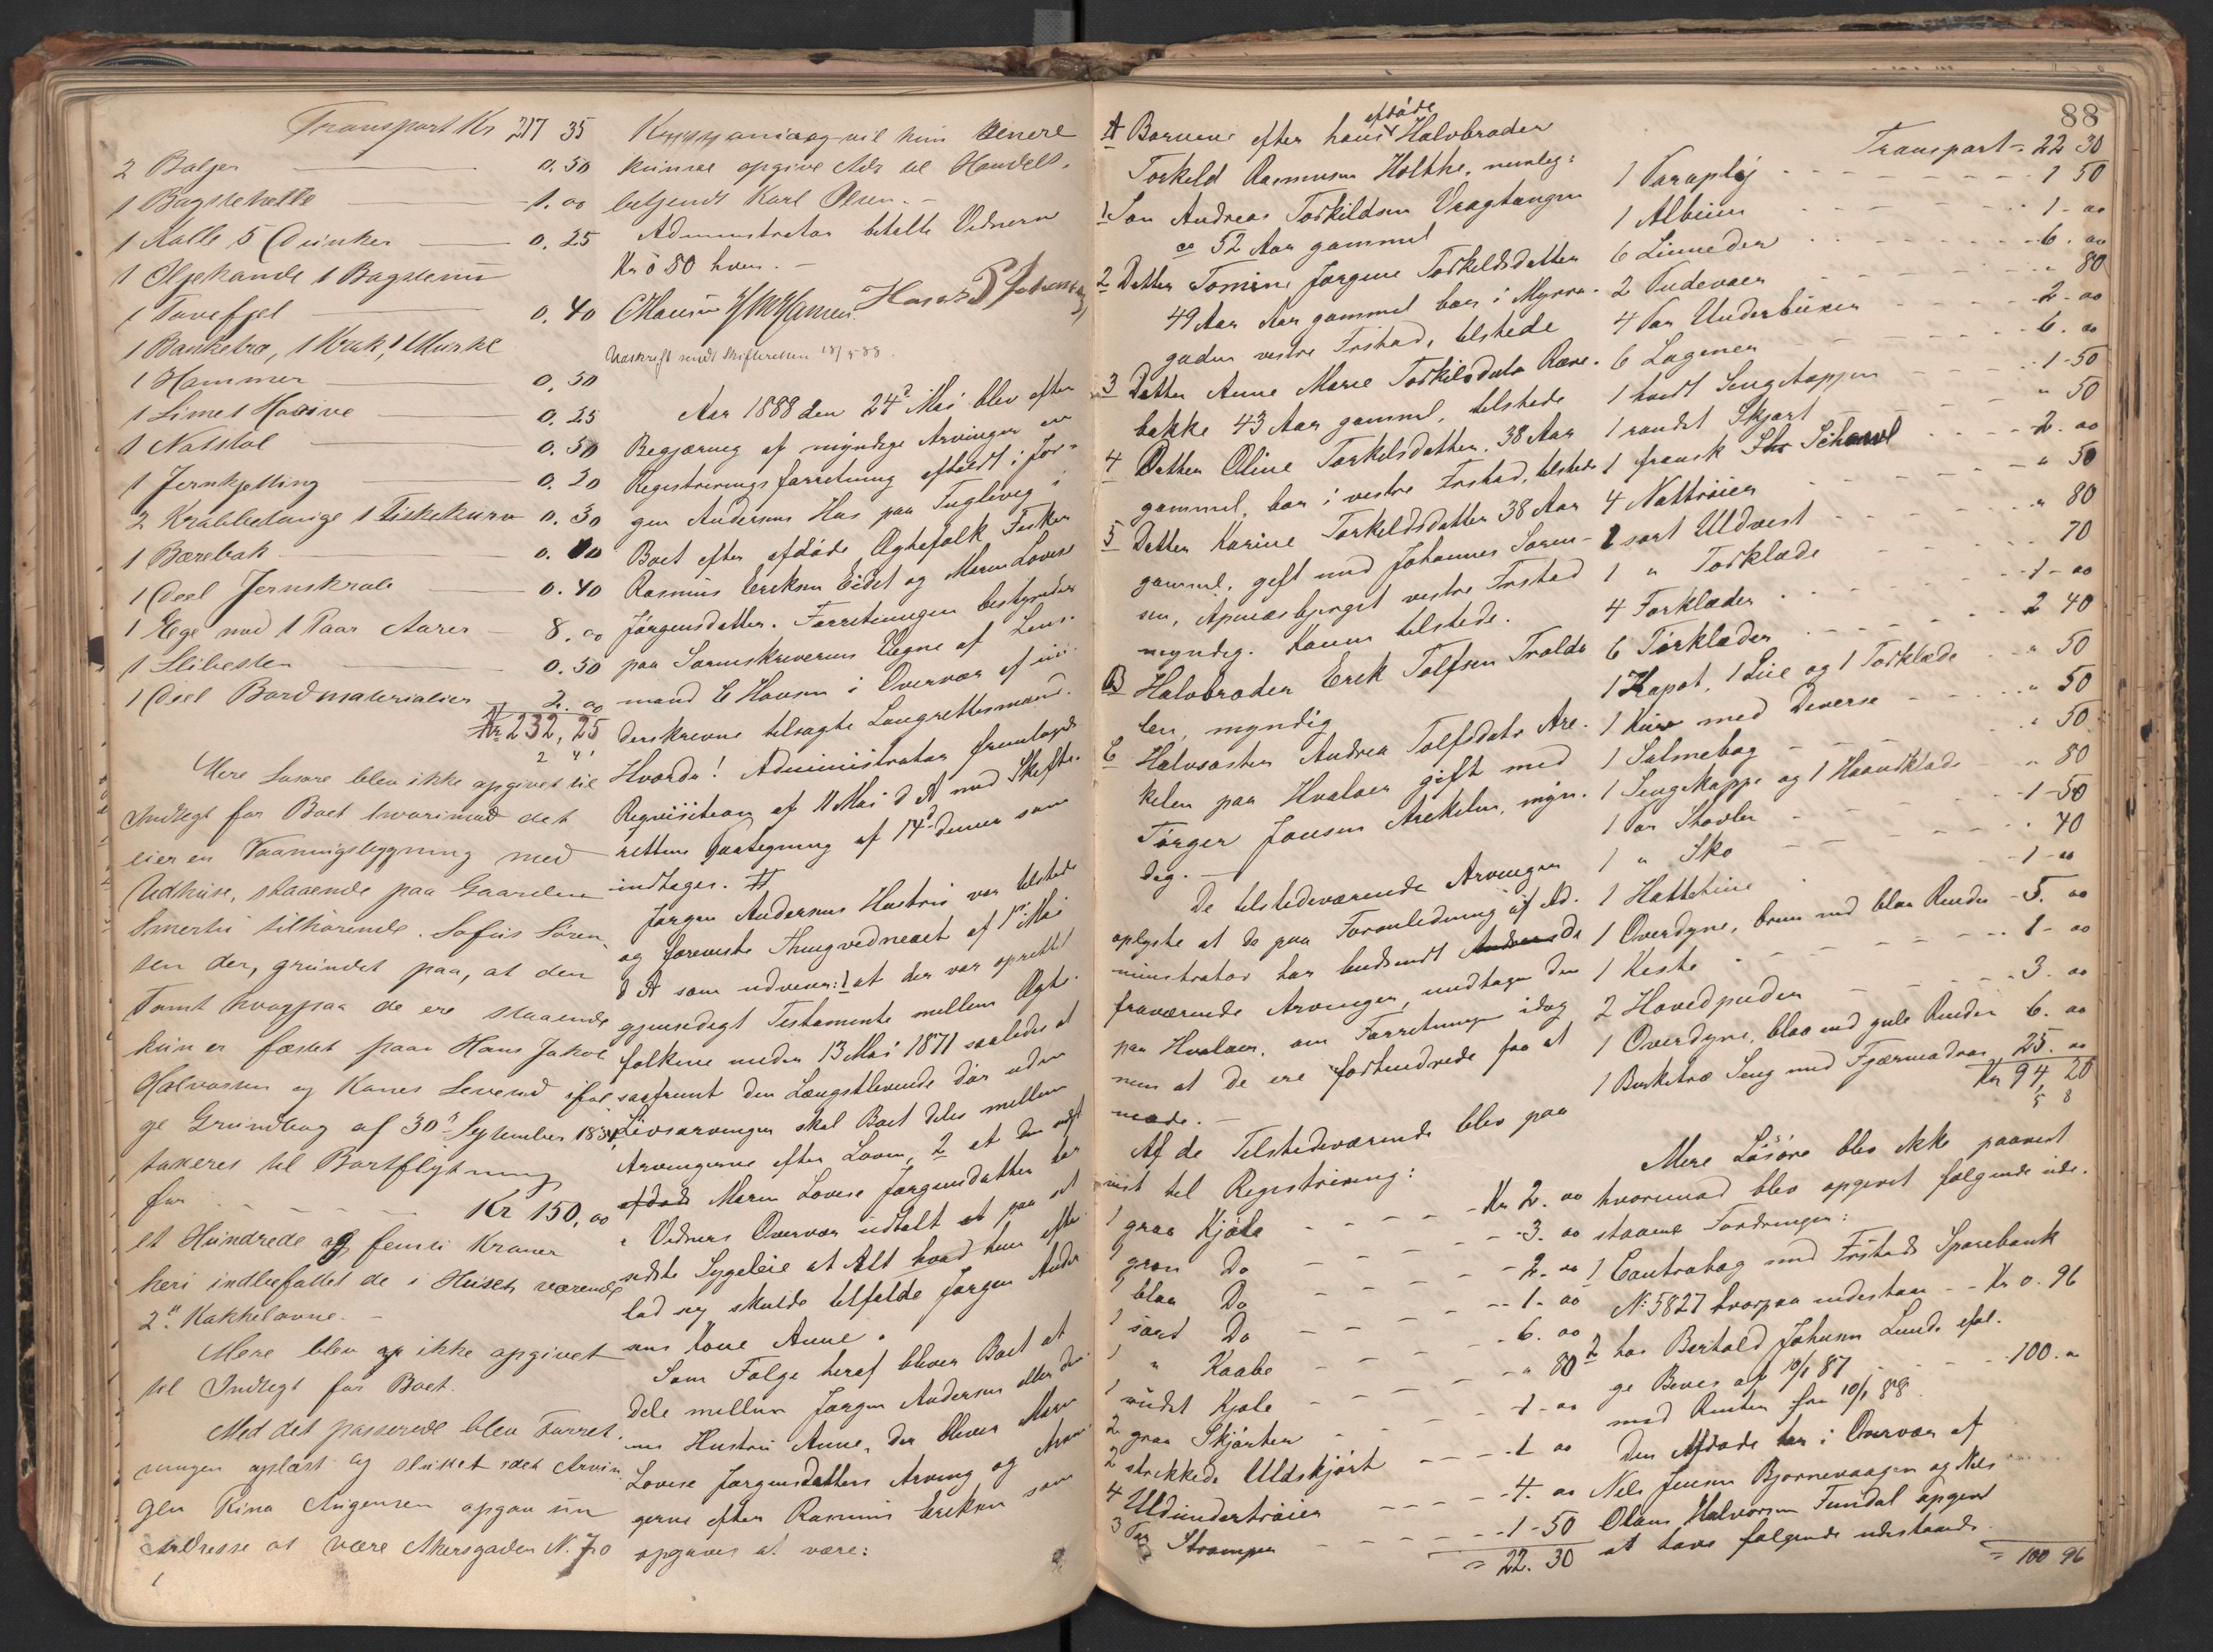 Transport Kr 217 35
2 Baljer 0.50
1 Bagstehelle 1.00
1 Kalle 5 Dunker 0.25
1 Oljekande 1 Bagstenn
1 Tavefjel 0.40
1 Banketræ, 1 Krak, 1
1 Hammer 0.50
1 Lime 1 0.25
1 Natstol 0.50
1 Jernkjetting 0.20
2 Krabbetenige 1 Fiskekurv 0.30
1 Bærebak 0.
1 Deel Jernskrab 0.40
1 Ege med 1 Paar Aarer 8.00
1 Slibesten 0.50
1 Deel Bordmaterialier 2.00
Kr 232,25
Mere Løsøre blev ikke opgivet til
Indtegt for Boet hvorimod det
eier en Vaaningsbygning med
Udhuse, staaende paa Gaarden
Smertu tilhørende Sofus Søren-
sen der, grundet paa, at den
Tomt hvorpaa de ere staaende
kun er fæstet paa Hans Jakob
Halvorsen og Kones Levend iføl
ge Grundbog af 30 September 188
taxeres til Bortflytning
for Kr 150,00
et Hundrede og femti Kroner
heri indbefattet de i Huset værende
2de Kakkelovne.-
Mere blev ikke opgivet
til Indtegt for Boet.
Med det passerede blev Forret-
ningen oplæst og sluttet idet Arvin
gen Rina Angensen opgav sin
Adresse at være Akersgaden N. 70
Kristiania og vil hun senere
kunne opgive Adr til Handels-
betjent Karl Olsen.-
Administrator betalte Vidnerne
Kr 0 80 hver.-
CHansen
Udskrift sendt Skifteretten 18/5 88.
Aar 1888 den 24 Mai blev efter
Begjæring af myndige Arvinger en
Registreringsforretning afholdt i Jør-
gen Andersens Hus paa Fuglevig i
Boet efter afdøde Ægtefolk Fisker
Rasmus Eriksen Eidet og Maren Lovise
Jørgensdatter. Forretningen bestyredes
paa Sorenskriverens Vegne af Lens-
mand C Hansen i Overvær af un-
derskrevne tilsagte Laugrettesmænd.
Hvorda! Administrator fremlagde
Reqvisition af 11 Mai d A med Skifte-
rettens Paategning af 14 denne som
indtages. #
Jørgen Andersens Hustru var tilstede
og foreviste Thingsvidneact af 1 Mai
d A som udviser: 1 at der var oprettet
gjensidigt Testamente mellem Ægte-
folkene under 13 Mai 1871 saaledes at
saafremt den Længstlevende dør uden
Livsarvinger skal Boet deles mellem
Arvingerne efter Loven, 2 at den nu
afdøde Maren Lovise Jørgensdatter har
i Vidners Overvær udtalt paa sit
sidste Sygeleie at Alt hvad hun efter-
lod sig skulde tilfalde Jørgen Ander
sens Kone Anne.
Som Følge heraf bliver Boet at
dele mellem Jørgen Andersen eller den-
nes Hustru Anne, der bliver Maren
Lovise Jørgensdatters Arving og Arvin-
gerne efter Rasmus Eriksen som
opgaves at være:
88
A Børnene efter hans afdøde Halvbroder
Torkild Rasmussen Holthe, nemlig:
1 Søn Andreas Torkildsen Vragtangen
ca 52 Aar gammel
2 Datter Tomine Jørgine Torkeldsdatter
49 Aar gammel bor i Myrra-
gaden vestre Frstad, tilstede
3 Datter Anne Marie Torkilsdatr Ræve-
bakke 43 Aar gammel, tilstede
4 Datter Oline Torkelsdatter, 38 Aar
gammel, bor i vestre Frstad, tilstede
5 Datter Karine Torkeldsdatter 38 Aar
gammel, gift med Johannes Søren-
sen, Apenæsbjerget vestre Frstad
myndig. Konen tilstede.
B Halvbroder Erik Tolfsen Trolda
len, myndig
C Halvsøster Andrea Tolfsdatr Are-
kelen paa Hvaløer gift med
Tørger Jansen Arekelen, myn-
dig.-
De tilstedeværende Arvinger
oplyste at de paa Foranledning af Ad-
ministrator har budsendt de
fraværende Arvinger, undtagen den
paa Hvaløer, om Forretningen idag
men at de ere forhindrede fra at
møde.-
Af de Tilstedeværende blev paa
vist til Registrering:
1 graa Kjole Kr 2.00
1 grøn Do 3.00
1 blaa Do 2.00
1 sort Do 1.00
1 " Kaabe 6.00
1 Kjole " 80
2 graa Skjørter 1.00
2 strikkede Uldskjørt 1.00
4 Uldundertrøier 4.00
3 Par Strømper 1-50
= 22.30
Transport = 22 30
1 Paraplÿ 1 50
1 Album 1-00
6 Linneder 6.00
2 Pudevaer " 80
4 Par Underbuxer 2-00
6 Lagener 6.00
1 hvidt Sengetæppe 1-50
1 randet Skjørt " 50
1 fransk Schawl 2.00
4 Nattrøier " 50
1 sort Uldvest " 80
1 " Forklæde 70
4 Forklæder 1-00
6 Tørklæder 2 40
1 Kapot, 1 Lue og 1 Tørklæde " 50
1 Kurv med Diverse " 50
1 Salmebog " 50
1 Sengekappe og 1 Haandklæde " 80
1 Par Støvler 1-50
1 " Sko 40
1 Hattetine 1-00
1 Overdyne, brun med blaa Render 5.00
1 Kiste 1-00
2 Hovedpuder 3.00
1 Overdyne, blaa med gule Render 6.00
1 Birketræ Seng med Fjærmadras 25.00
Kr 94,20
Mere Løsøre blev ikke paavist
hvorimod blev opgivet følgende ude-
staaende Fordringer:
1 Contrabog med Frstads Sparebank
N: 5827 hvorpaa indestaar - Kr 0.96
2 hos Berthold Johnsen Lunde iføl-
ge Bevis af 10/1 87 100.00
med Renter fra 10/1 88.
Den Afdøde har i Overvær af
Nils Jensen Bjørnevaagen og Nils
Olaus Halvorsen Fundal opgivet
at have følgende udestaaende
= 100 96